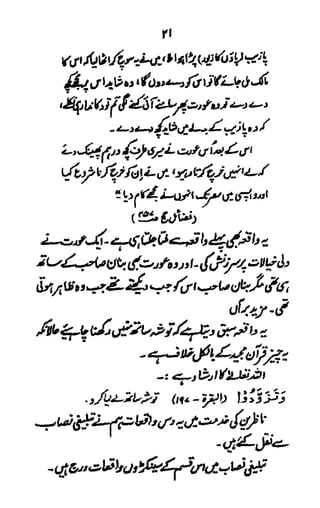 ۲۱
پازیب (پاؤں کا زیور) پڑا ہوا ملا، میں نے یہ سوچ کر اٹھا لیا کہ اس کا
مالک مل جائے گا تو اس کو دے دوں گا، وہ شاید اس پر مجھے کچھ
دے دے تو وہ عورت پھر سامنے آئی کہنے لگی تم تو دکاندار ہی نکلے،
کہ وہ پازیب کے بدلے میں شاید کچھ دے دے۔
اس کے بعد اس عورت نے میری طرف کچھ درہم پھینک دیے
کہ لے انہیں خرچ کرتا رہیو، میں نے ان کو خرچ کرنا شروع کیا
اور واپسی میں مصر تک انہوں نے مجھے کام دیا"
(فضائل حج ص۲۵۷)
یہ واقعہ بھی پہلے واقعہ سے ملتا جلتا ہی ہے۔ ایک عورت نے
دلی خیالات پر سرزنش کی۔ اور وہ عورت بھی بنان صاحب کے ساتھ
ہی تھی مگر بنان صاحب اس کو جب دیکھتے تھے جب وہ ظاہر ہوتی
تھی۔ مزید برآں
یہ واقعہ سبق دیتا ہے کہ توشہ ساتھ نہیں رکھنا چاہیئے حالانکہ
یہ چیز قرآن مجید کے بالکل خلاف ہے۔
اللہ تعالےٰ کا ارشاد ہے:۔
وَتَزَوَّدُوْا (البقرۃ - ۱۹۷) توشہ ساتھ لے لیا کرو۔
ناظرین کی خدمت میں یہ دس واقعات ہم نے تبلیغی نصاب
سے نقل کئے ہیں۔
تبلیغی نصاب میں اس قسم کے سینکڑوں واقعات درج ہیں۔